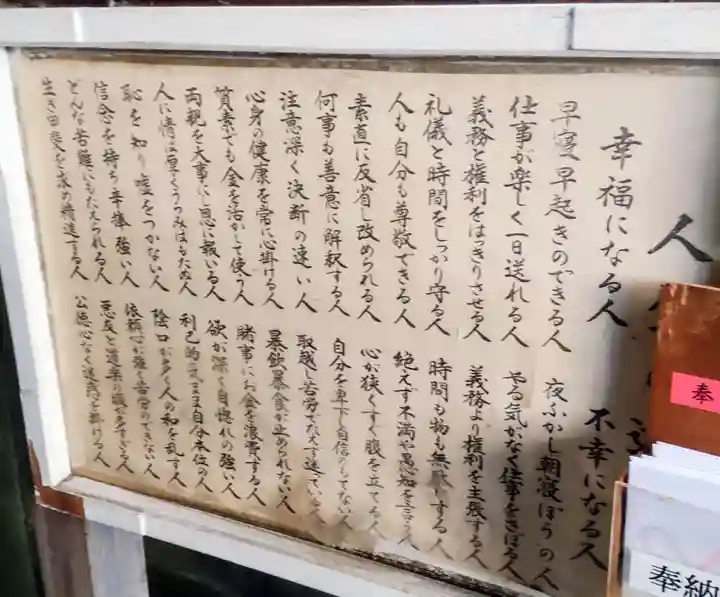 人生
幸福になる人
早寝早起きのできる人
仕事が楽しく一日送れる人
義務と権利をはっきりさせる人
礼儀と時間をしっかり守る人
人も自分も尊敬できる人
素直に反省し改められる人
何事も善意に解釈する人
注意深く決断の速い人
心身の健康を常に心掛ける人
質素でも金を活かして使う人
両親を大事にし恩に報いる人
人に情は厚くうらみはもたぬ人
恥を知り嘘をつかない人
信念を持ち辛棒強い人
どんな苦難にもたえられる人
生き甲斐を求め精進する人
不幸になる人
夜ふかし朝寝ぼうの人
やる気がなく仕事をさぼる人
義務より権利を主張する人
時間も物も無駄にする人
絶えず不満や愚知を言う人
心が狭くすぐ腹を立てる人
自分を卑下し自信のもてない人
取越し苦労でたえず迷っている人
暴飲暴食が止められない人
賭事にお金を浪費する人
欲が深く自惚れの強い人
利己的で気まま自分本位の人
陰口が多く人の和を乱す人
依頼心が強く苦労のできない人
悪友と道楽の織や多すぎる人
公徳心なく迷惑を掛ける人
奉
奉納